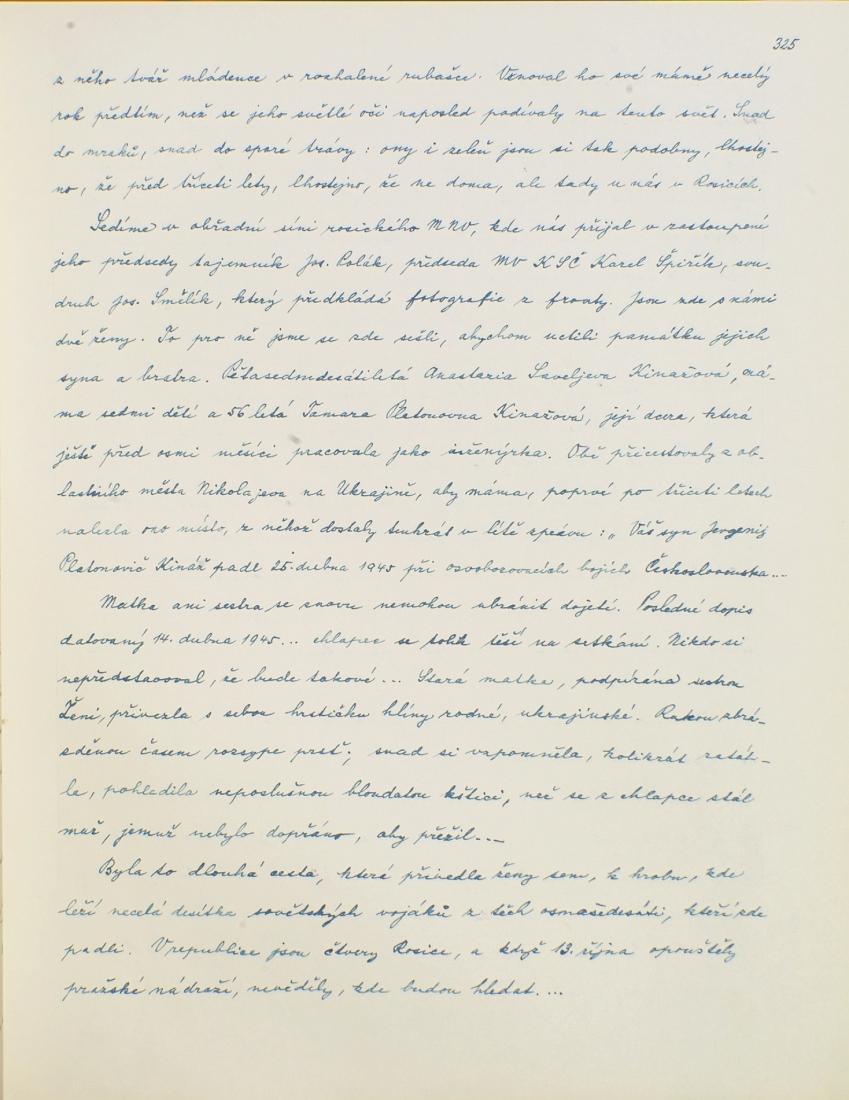 325
z něho tvář mládence v rozhalené rubašce. Věnoval ho své mámě necelý
rok předtím, než se jeho světlé oči naposled podívaly na tento svět. Snad
do mraků, snad do sporé trávy: ony i zeleň jsou si tak podobny, lhostej-
no, že před třiceti lety, lhostejno, že ne doma, ale tady u nás v Rosicích.
Sedíme v obřadní síni rosického MNV, kde nás přijal v zastoupení
jeho předsedy tajemník Jos. Polák, předseda MV KSČ Karel Špiřík, sou-
druh Jos. Smělík, který předkládá fotografie z fronty. Jsou zde s námi
dvě ženy. To pro ně jsme se zde sešli, abychom uctili památku jejich
syna a bratra. Pětasedmdesátiletá Anastazia Saveljeva Kinažová, má-
ma sedmi dětí a 56 letá Tamara Platonovna Kinažová, její dcera, která
ještě před osmi měsíci pracovala jako inženýrka. Obě přicestovaly z ob-
lastního města Nikolajeva na Ukrajině, aby máma, poprvé po třiceti letech
nalezla ono místo, z něhož dostaly tenkrát v létě zprávu: „Váš syn Jevgenij
Platonovič Kináž padl 25. dubna 1945 při osvobozovacích bojích Československa...
Matka ani sestra se znovu nemohou ubránit dojetí. Poslední dopis
datovaný 14. dubna 1945... chlapec se tolik těší na setkání. Nikdo si
nepředstavoval, že bude takové... Stará matka, podpírána sestrou
Ženi, přivezla s sebou hrstičku hlíny rodné, ukrajinské. Rukou zbrá-
zděnou časem rozsype prst; snad si vzpomněla, kolikrát zatáh-
la, pohladila neposlušnou blondatou kštici, než se z chlapce stál
muž, jemuž nebylo dopřáno, aby přežil...
Byla to dlouhá cesta, která přivedla ženy sem, k hrobu, kde
leží necelá desítka sovětských vojáků z těch osmašedesáti, kteří zde
padli. V republice jsou čtvery Rosice, a když 13. října opouštěly
pražské nádraží, nevěděly, kde budou hledat....